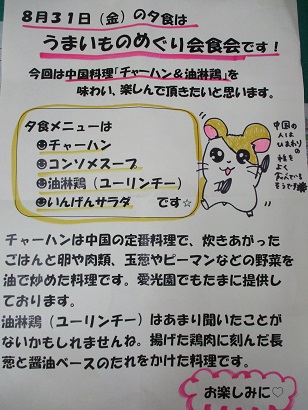 8月31日（金）の夕食は
うまいものめぐり会食会です！
今回は中国料理「チャーハン＆油淋鶏」を
味わい、楽しんで頂きたいと思います。
夕食メニューは
☻チャーハン
☻コンソメスープ
☻油淋鶏（ユーリンチー）
☻いんげんサラダ　です☆
中国の
人は
ひまわりの
種を
よく
食べている
そうです
チャーハンは中国の定番料理で、炊きあがった
ごはんと卵や肉類、玉葱やピーマンなどの野菜を
油で炒めた料理です。愛光園でもたまに提供し
ております。
油淋鶏（ユーリンチー）はあまり聞いたことが
ないかもしれませんね。揚げた鶏肉に刻んだ長
葱と醤油ベースのたれをかけた料理です。
お楽しみに♡